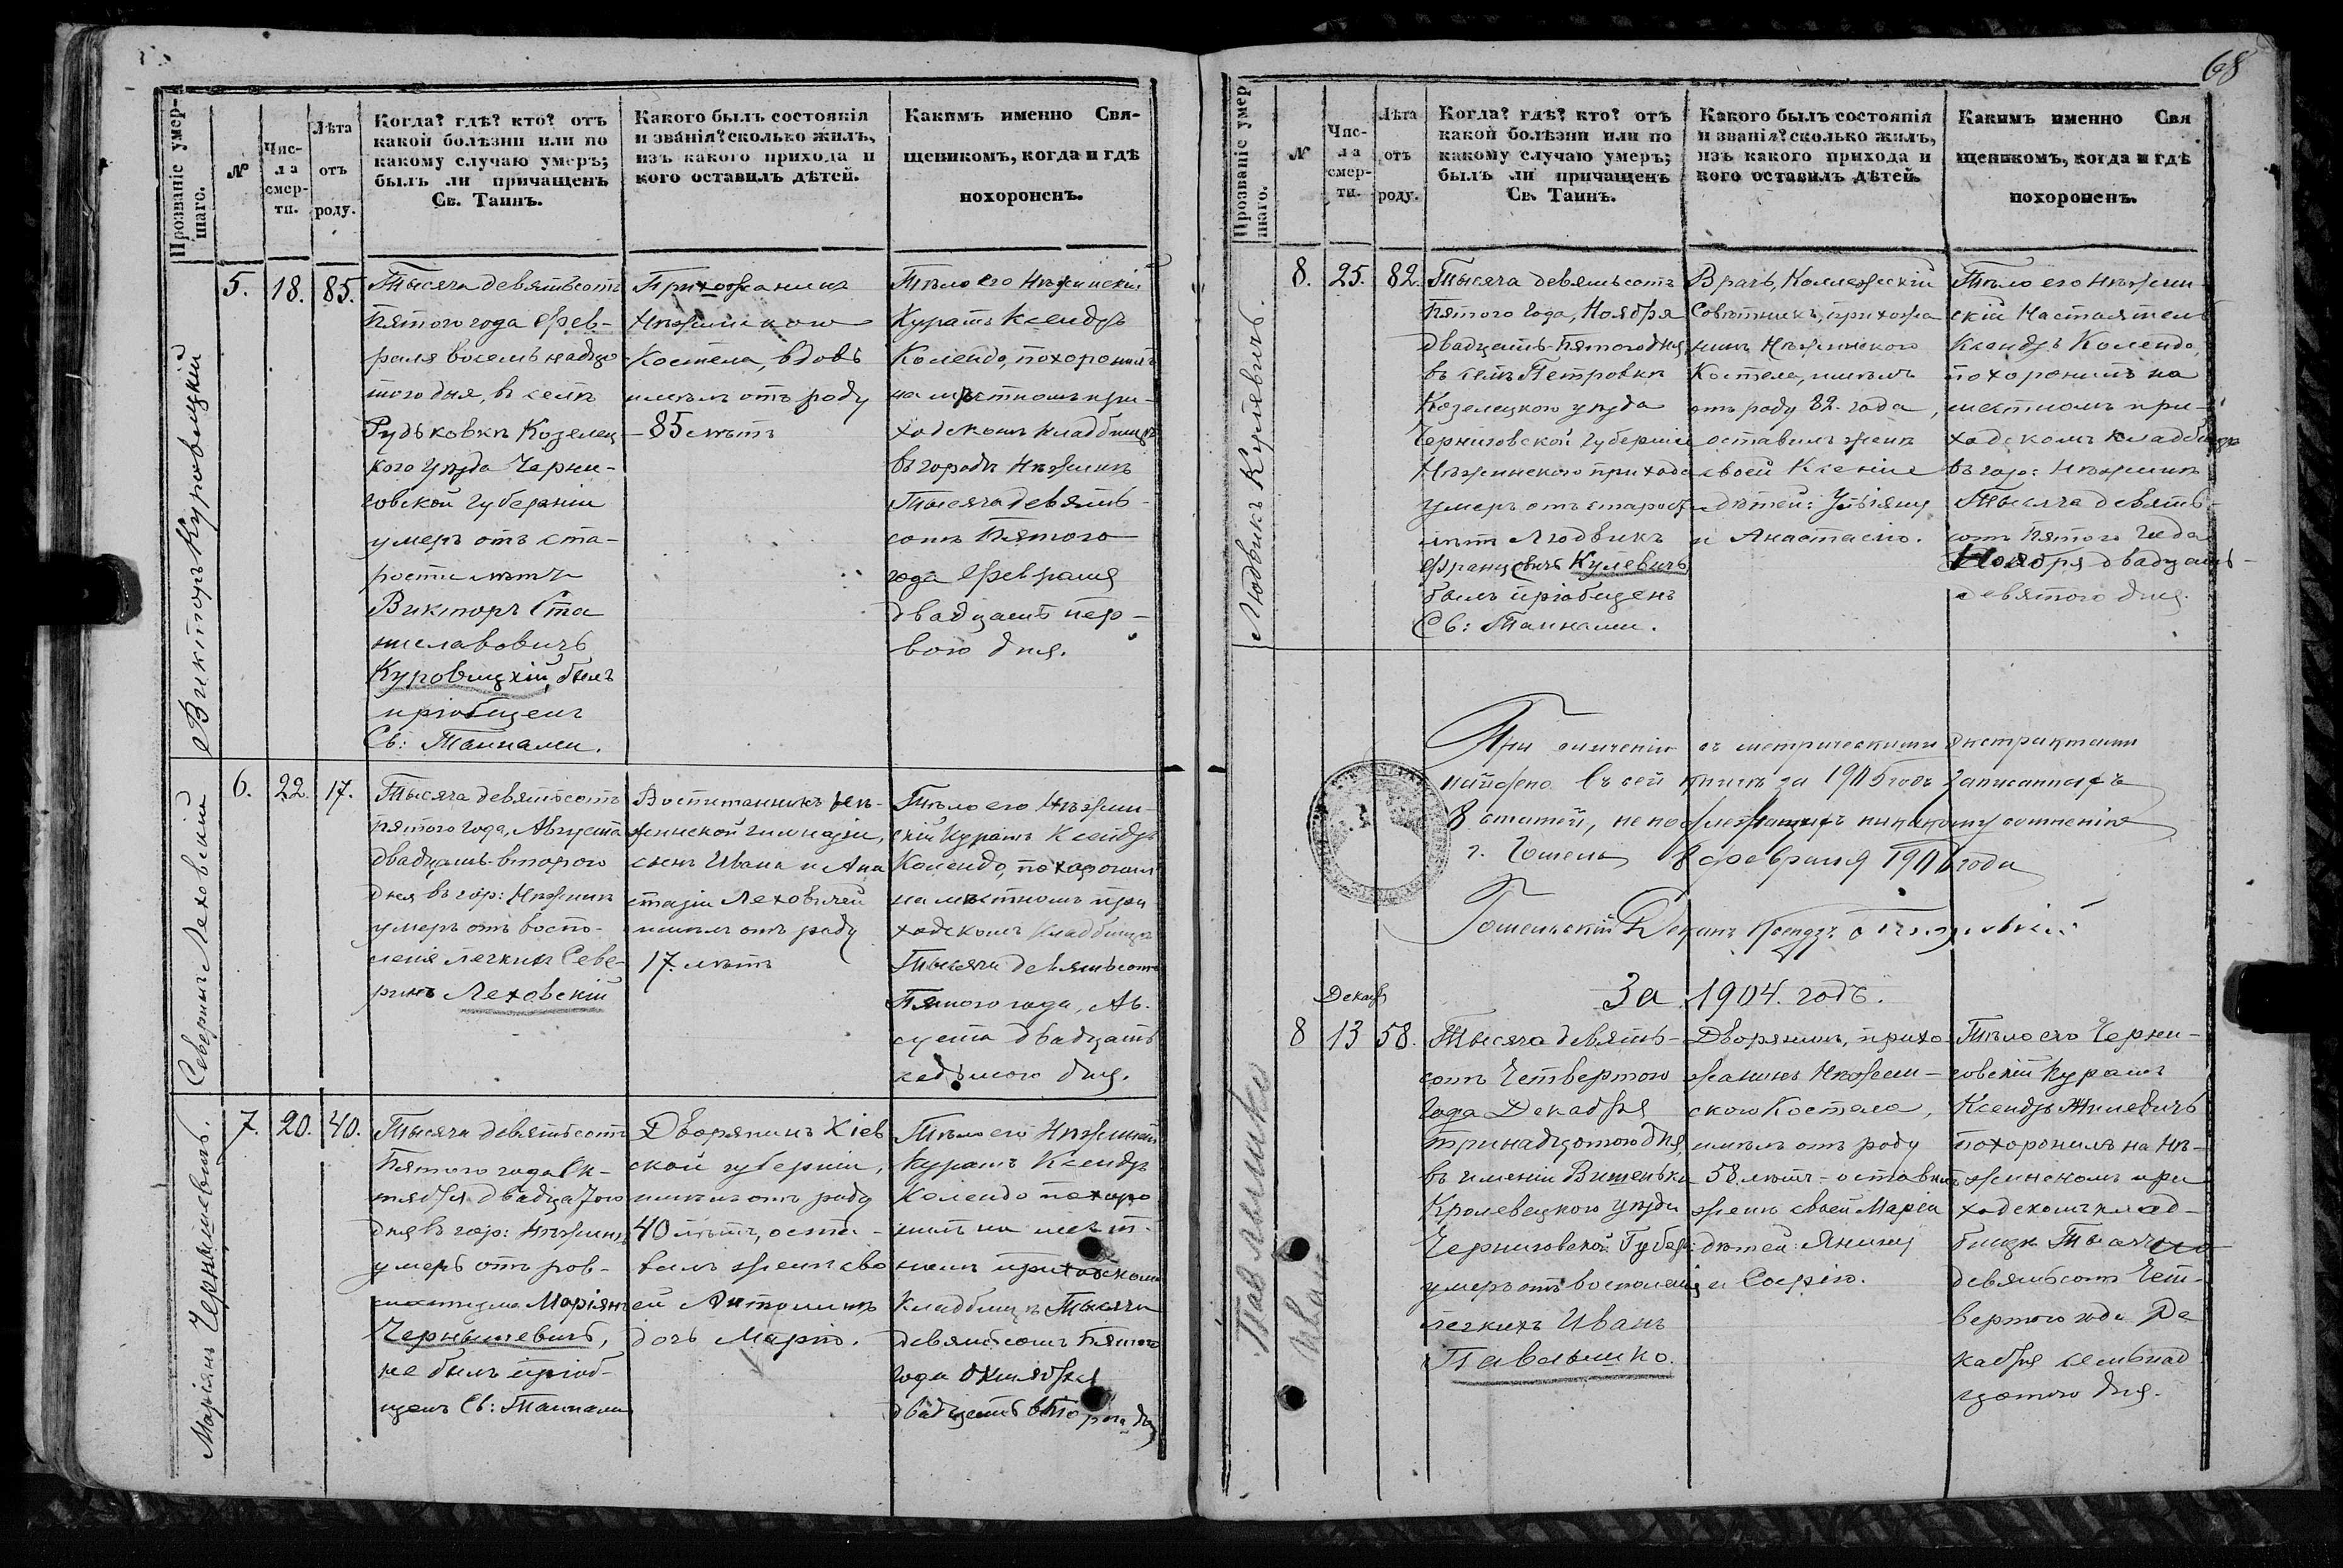 68
Прозваніе умер-
шаго.
№
Чис-
ла
смер-
ти.
Лѣта
отъ
роду.
Когда? гдѣ? кто? отъ
какой болѣзни или по
какому случаю умеръ;
былъ ли причащенъ
Св. Таинъ.
Какого былъ состоянія
и званія? сколько жилъ,
изъ какого прихода и
кого оставилъ дѣтей.
Какимъ именно Свя-
щеникомъ, когда и гдѣ
похороненъ.
Викторъ Куровицкій
5.
18.
85.
Тысяча девятьсотъ
пятого года Фев-
раля восемнадца
того дня, въ селѣ
Рудьковкѣ Козелец
кого уѣзда Черни-
говской губерніи
умеръ отъ ста-
рости лѣтъ
Викторъ Ста
ниславовичъ
Куровицкій, былъ
пріобщенъ
Св: Тайнами.
Прихожанинъ
Нѣжинского
Костела, вдовъ
имѣлъ отъ роду
85 лѣтъ
Тѣло его Нѣжинскій
Куратъ Ксендзъ
Колендо, похоронилъ
на мѣстномъ при-
ходскомъ кладбищѣ
въ городѣ Нѣжинѣ
Тысяча девять-
сотъ Пятого
года Февраля
двадцать пер-
вого дня.
Северинъ Леховскій
6.
22.
17.
Тысяча девятьсотъ
пятого года, Августа
двадцать-второго
дня въ гор: Нѣжинѣ
умеръ отъ воспа-
ленія легкихъ Севе-
ринъ Леховскій
Воспитанникъ Нѣ-
жинской гимназіи,
сынъ Ивана и Ана
стазіи
имѣлъ отъ роду
17. лѣтъ
Тѣло его Нѣжин-
скій Куратъ Ксендзъ
Колендо, похоронилъ
на мѣстномъ при
ходскомъ кладбищѣ
Тысяча девятьсотъ
Пятого года, Ав-
густа двадцать
седьмого дня.
Маріянъ Чернышевичъ.
7.
20.
40.
Тысяча девятьсотъ
Пятого года Ок-
тября двадцатого
дня въ гор: Нѣжинѣ
умеръ отъ рев-
матизма Маріянъ
Чернышевичъ,
не былъ пріоб-
щенъ Св: Тайнами
Дворянинъ Кіев
ской губерніи,
имѣлъ отъ роду
40 лѣтъ, оста-
вилъ женѣ сво
ей Антонинѣ
дочь Марію.
Тѣло его Нѣжинскій
Куратъ Ксендзъ
Колендо похоро
нилъ на мѣст-
номъ приходскомъ
кладбищѣ Тысяча
девятьсотъ Пятого
года октября
двадцать второго дня
Прозваніе умер
шаго.
№
Чис-
ла
смер-
ти.
Лѣта
отъ
роду.
Когда? гдѣ? кто? отъ
какой болѣзни или по
какому случаю умеръ;
былъ ли причащенъ
Св. Таинъ.
Какого былъ состоянія
и званія? сколько жилъ,
изъ какого прихода и
кого оставилъ дѣтей.
Какимъ именно Свя
щеникомъ, когда и гдѣ
похороненъ.
Людвикъ Кулевичъ.
8.
25.
82.
Тысяча девятьсотъ
Пятого года, Ноября
двадцать-пятого дня
въ селѣ Петровкѣ
Козелецкого уѣзда
Черниговской Губерніи
Нѣжинского прихода
умеръ отъ старости
лѣтъ Людвикъ
Францовичъ Кулевичъ
былъ пріобщенъ
Св: Тайнами.
Врачъ, Коллежскій
Совѣтникъ, прихожа
нинъ Нѣжинского
Костела, имѣлъ
отъ роду 82. года,
оставилъ женѣ
своей Ксеніи
дѣтей: Ульяну
и Анастасію.
Тѣло его Нѣжин-
скій Настоятель
Ксендзъ Колендо,
похоронилъ на
мѣстномъ при-
ходскомъ кладбищѣ
въ гор: Нѣжинѣ
Тысяча девять-
сотъ Пятого года
Ноября двадцать-
девятого дня.
При сличеніи съ метрическими экстрактами
найдено въ сей книгѣ за 1905 годъ записанныхъ
8 статей, неподлежащихъ никакому сомненію
г. Гомель 8 февраля 1906 года
Гомельскій Деканъ Ксендзъ
За 1904. годъ.
Павлышко
Иван
Декабр
8
13
58.
Тысяча девять-
сотъ Четвертого
года Декабря
тринадцатого дня,
въ имѣніи Вишеньки
Кролевецкого уѣзда
Черниговской Губер:
умеръ отъ воспаленія
легкихъ Иванъ
Павлышко.
Дворянинъ, прихо
жанинъ Нѣжин-
ского Костела,
имѣлъ отъ роду
58. лѣтъ - оставилъ
женѣ своей Маріи
дѣтей: Янину
и Софію.
Тѣло его Черни-
говскій Куратъ
Ксендзъ Жилевичъ
похоронилъ на Нѣ-
жинскомъ при
ходскомъ клад-
бищѣ Тысяча
девятьсотъ Чет-
вертого года Де
кабря семьнад
цатого дня.